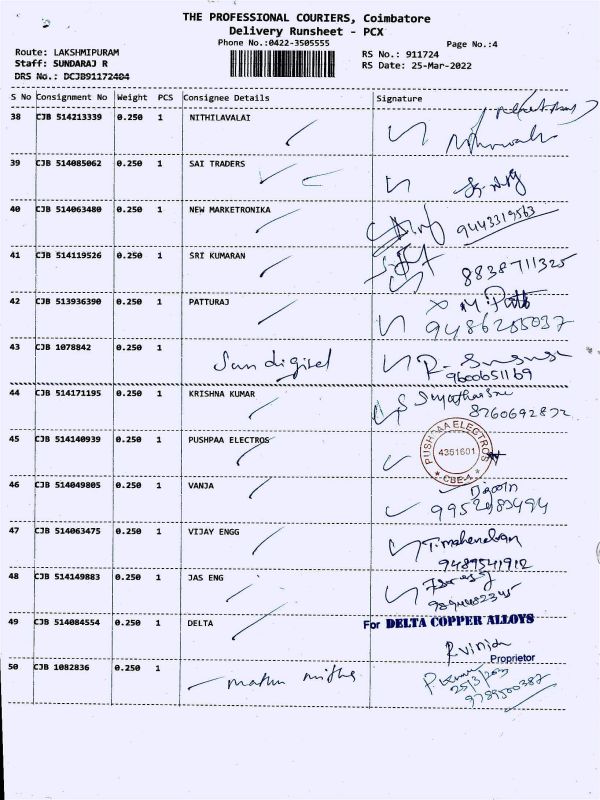 THE PROFESSIONAL COURIERS, Coimbatore
Delivery Runsheet - PCX
Phone No.:0422-3505555
Page No.:4
Route: LAKSHMIPURAM
RS No.: 911724
Staff: SUNDARAJ R
RS Date: 25-Mar-2022
DRS No.: DCJB91172404
S No Consignment No Weight PCS Consignee Details Signature
38 CJB 514213339 0.250 1 NITHILAVALAI
39 CJB 514085062 0.250 1 SAI TRADERS
40 CJB 514063480 0.250 1 NEW MARKETRONIKA 9443319563
41 CJB 514119526 0.250 1 SRI KUMARAN 8838711325
42 CJB 513936390 0.250 1 PATTURAJ M. Patt
9486255037
43 CJB 1078842 0.250 1 Sun digital
9600651169
44 CJB 514171195 0.250 1 KRISHNA KUMAR
8760692872
45 CJB 514140939 0.250 1 PUSHPAA ELECTROS PUSHPAA ELECTROS 4351601 CBE-1
46 CJB 514049805 0.250 1 VANJA
9952983494
47 CJB 514063475 0.250 1 VIJAY ENGG
9489541912
48 CJB 514149883 0.250 1 JAS ENG
49 CJB 514084554 0.250 1 DELTA For DELTA COPPER ALLOYS
Proprietor
50 CJB 1082836 0.250 1
9789500387